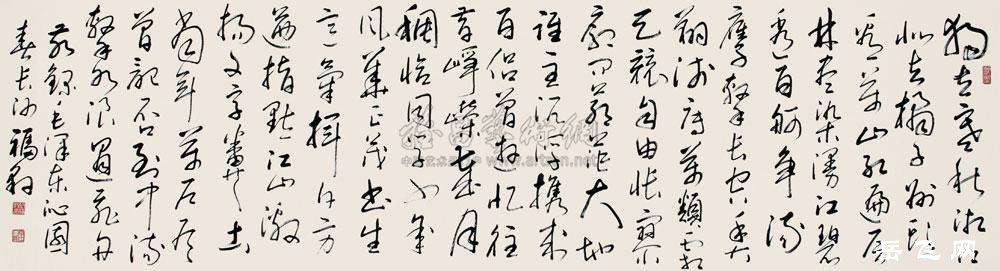 独立寒秋湘江
北去橘子洲头
看万山红遍层
林尽染漫江碧
透百舸争流
鹰击长空鱼
翔浅底万類霜
天竞自由怅寥
廓问苍茫大地
谁主沉浮携来
百侣曾游忆往
昔峥嵘岁月
稠恰同学少年
风华正茂书生
意气挥斥方
遒指点江山激
扬文字粪土
当年万户侯
曾记否到中流
击水浪遏飞舟
敬录毛泽东沁园
春长沙 福
岳飞网